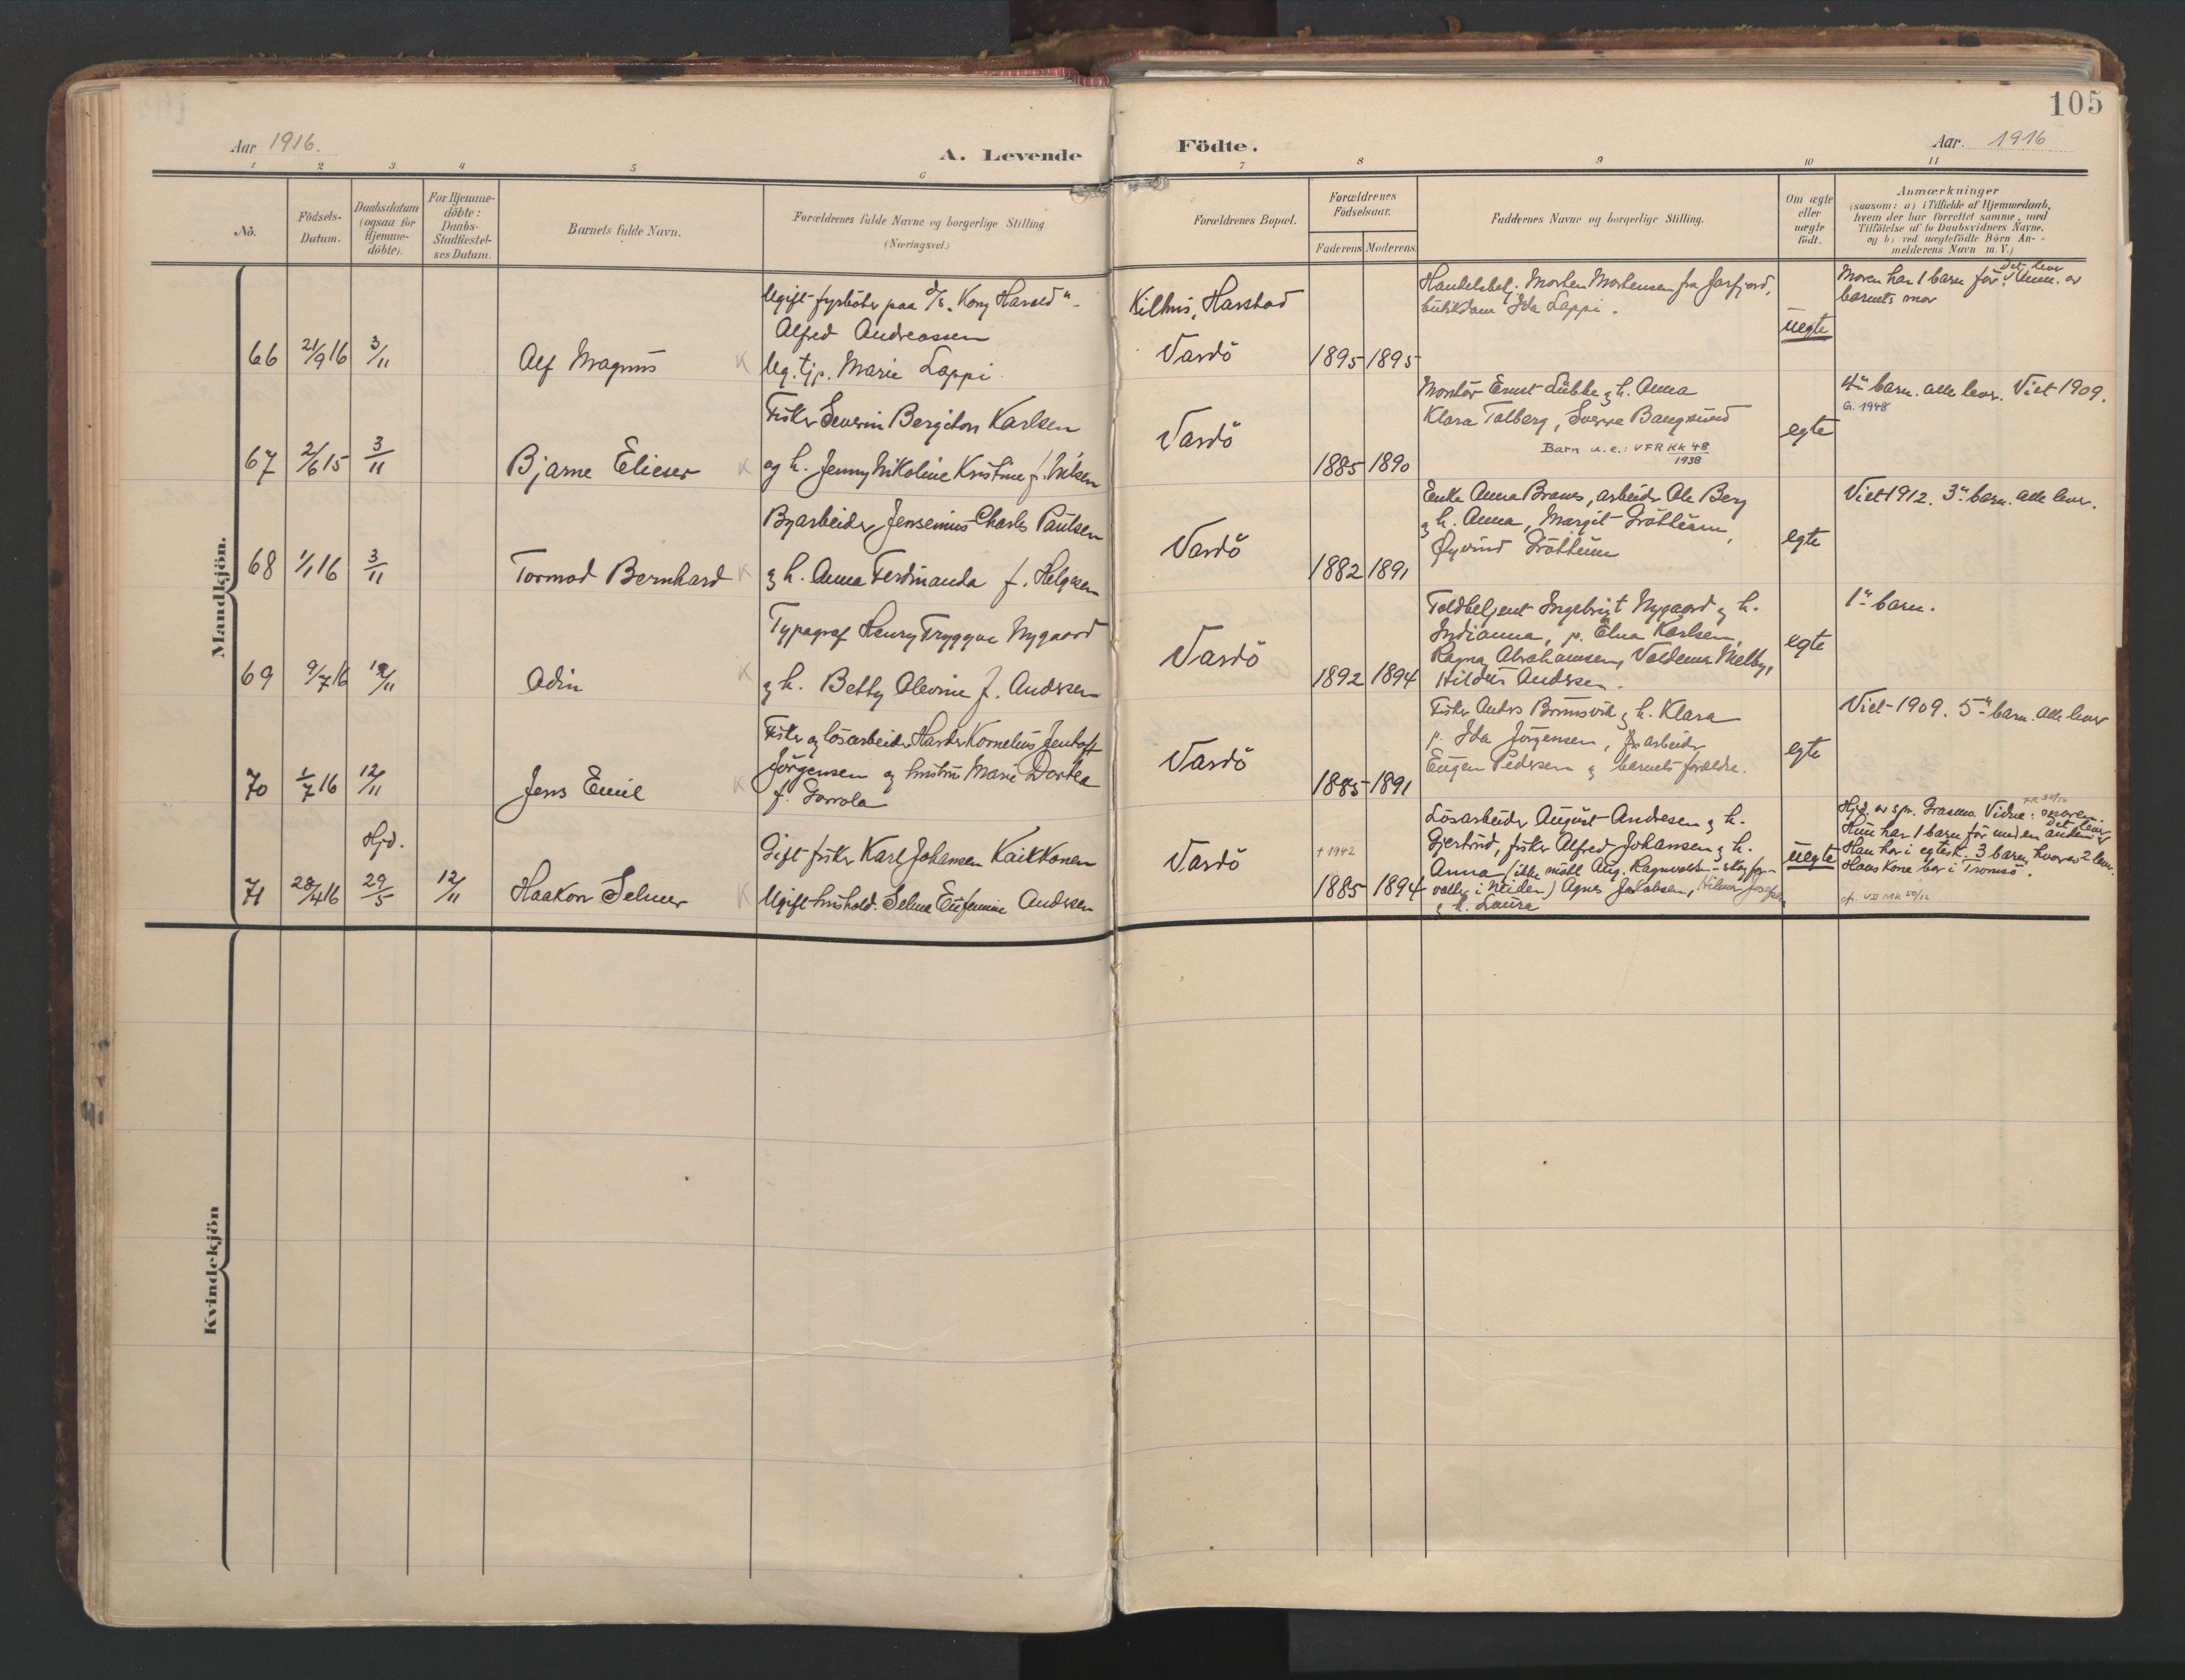 105
Aar 1916.
A. Levende
Födte.
Aar. 1916
1 2 3 4 5 6 7 8 9 10 11
No.
Födsels-
Datum.
Daabsdatum
(ogsaa for
Hjemme-
döbte).
For Hjemme-
döbte:
Daabs-
Stadfæstel-
ses Datum.
Barnets fulde Navn.
Forældrenes fulde Navne og borgerlige Stilling
(Næringsvei.)
Forældrenes Bopæl.
Forældrenes
Födselsaar.
Faderens Moderens
Faddernes Navne og borgerlige Stilling.
Om ægte
eller
uægte
født.
Anmærkninger
(saasom: a) i Tilfælde af Hjemmedaab,
hvem der har forrettet samme, med
Tilföielse af to Daabsvidners Navne,
og b) ved uægtefödte Börn An-
melderens Navn m.V.)
Mandkjön.
66 21/9 16 3/11
Alf Magnus
K
Ugift fyrböter paa d/s. Kong Harald".
Alfred Andreassen
Ug. tjp. Marie Lappi
Harstad
Vardö
1895 1895
Handelsbetj. Morten Mortensen fra Jarfjord,
Ida Lappi.
uegte
Moren har 1 barn før, det lever
Anm. av
barnets mor
67 2/6 15 3/11
Bjarne Elieser
K
Fisker Severin Bergiton Karlsen
og h. Jenny Nikoline Kristine f. Nilsen
Vardö
1885 1890
Montör Ernst Lübbe og h. Anna
Klara Talberg, Sverre Bangsund
Barn u.e.: VFR KK 48/1938
egte
4de barn. alle lever. Viet 1909.
G. 1948
68 1/1 16 3/11
Tormod Bernhard
K
Byarbeider Jensenius Charles Paulsen
og h. Anna Ferdinanda f. Helgesen
Vardö
1882 1891
Enke Anna Braws, arbeider Ole Berg
og h. Anna, Margit Gröttum,
Øyvind Gröttum
egte
Viet 1912. 3de barn. alle lever.
69 9/7 16 12/11
Odin
K
Typograf Henry Tryggve Nygaard
og h. Betty Olevine f. Andersen
Vardö
1892 1894
Toldbetjent Ingebrigt Nygaard og h.
Indianna, p. Elna Karlsen,
Ragna Abrahamsen, Valdemar Melby,
Hildur Andersen.
egte
1ste barn.
70 1/7 16 12/11
Jens Emil
K
Fisker og lösarbeider Harder Kornelius Jentoft
Jörgensen og hustru Marie Dortea
f. Gorrola
Vardö
1885 1891
Fisker Anders Brunsvik og h. Klara
p. Ida Jörgensen, arbeider
Eugen Pedersen og barnets forældre.
egte
Viet 1909. 5te barn. alle lever
71 28/4 16 Hjd. 29/5 12/11
Haakon Selmer
K
Gift fisker Karl Johansen Kaikkonen
Ugift hushold. Selma Eufemine Andersen
Vardö
† 1942
1885 1894
Lösarbeider August Andresen og h.
Gjertrud, fisker Alfred Johansen og h.
Anna (ikke mött Aug. Ragnvald skogfor-
valter i Neiden) Agnes Jakobsen, Hilmar Josefsen
og h. Laura
uegte
Hjd. av spr. Grasmo. Vidne: moren.
Hun har 1 barn før med en anden. det lever
Han har i egtesk. 3 barn, hvorav 2 lever.
Hans kone bor i Tromsö.
Kvindekjön